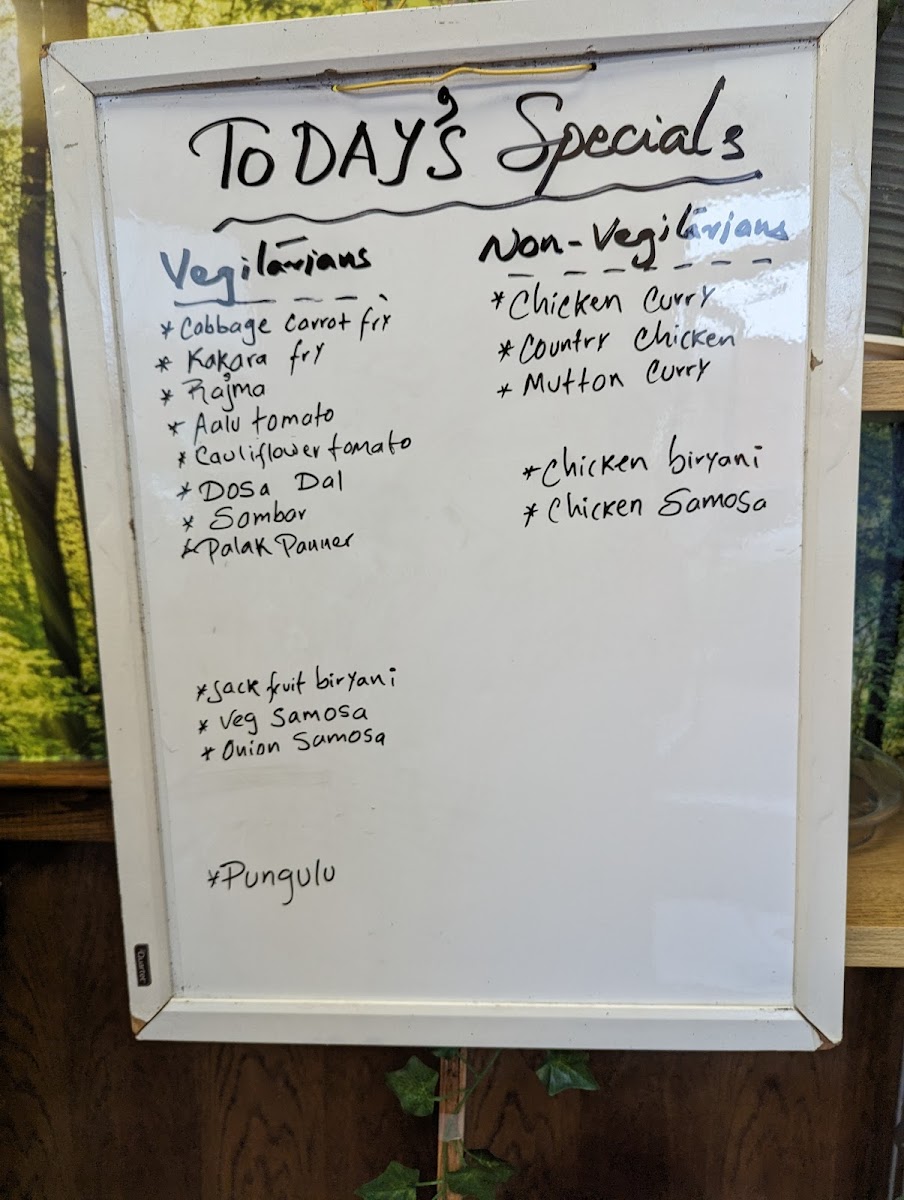 TODAY's Specials
Vegitarians
* Cabbage Carrot fry
* Kakara fry
* Rajma
* Aalu tomato
* Cauliflower tomato
* Dosa Dal
* Sambar
* Palak Panner
* Jack fruit biryani
* Veg Samosa
* Onion Samosa
* Pungulu
Non-Vegitarians
* Chicken Curry
* Country Chicken
* Mutton Curry
* Chicken biryani
* Chicken Samosa
Quartet